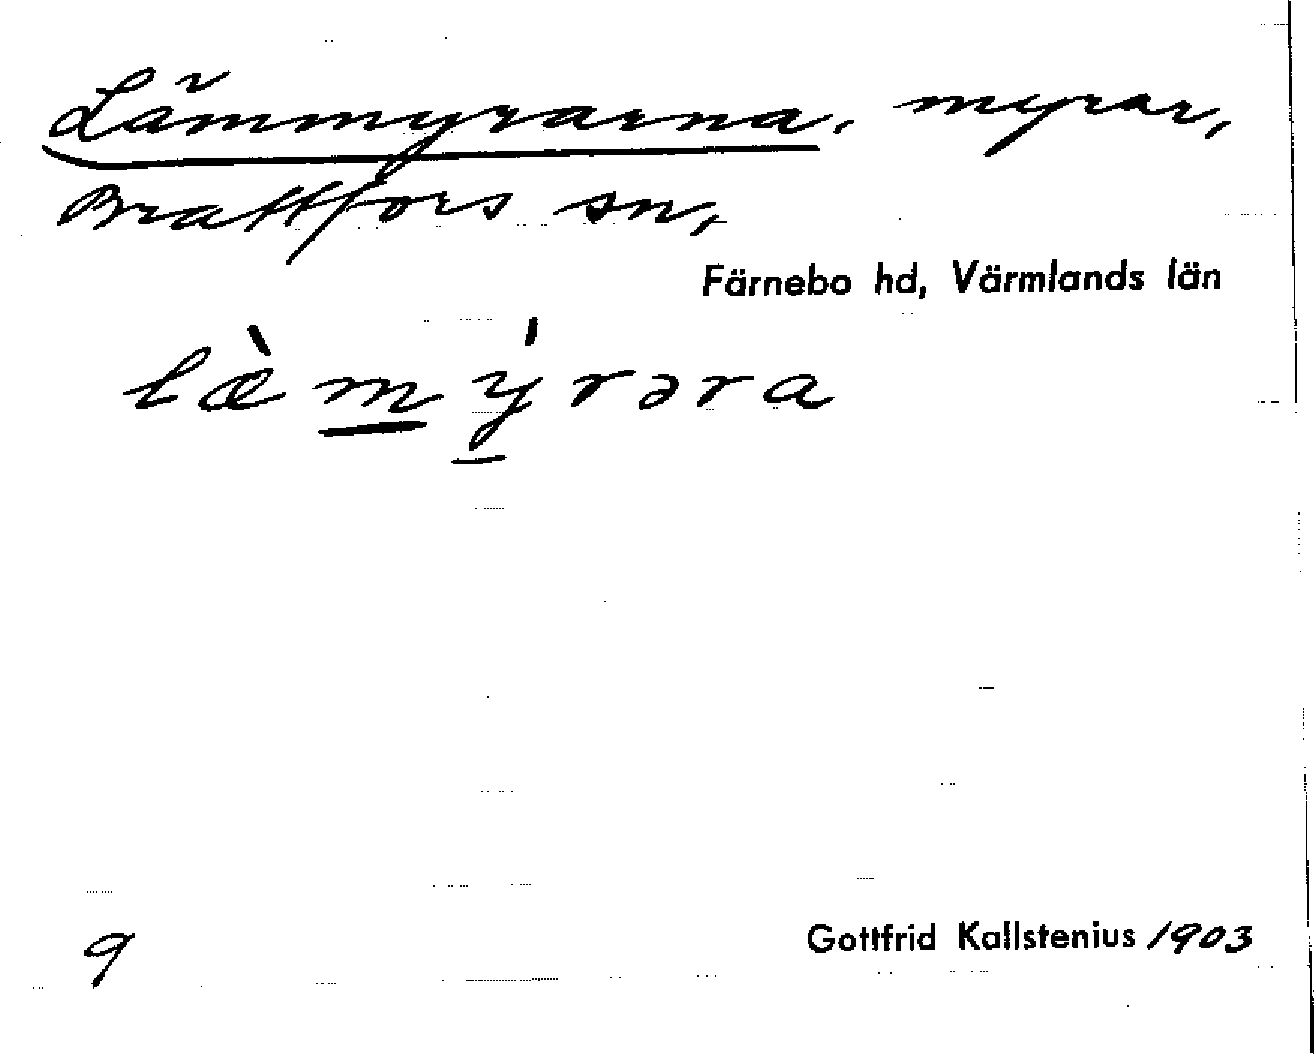 Lämmyrarna, myrar,
Brattfors sn,
Färnebo hd, Värmlands län
læ̀mýrəra
9
Gottfrid Kallstenius 1903